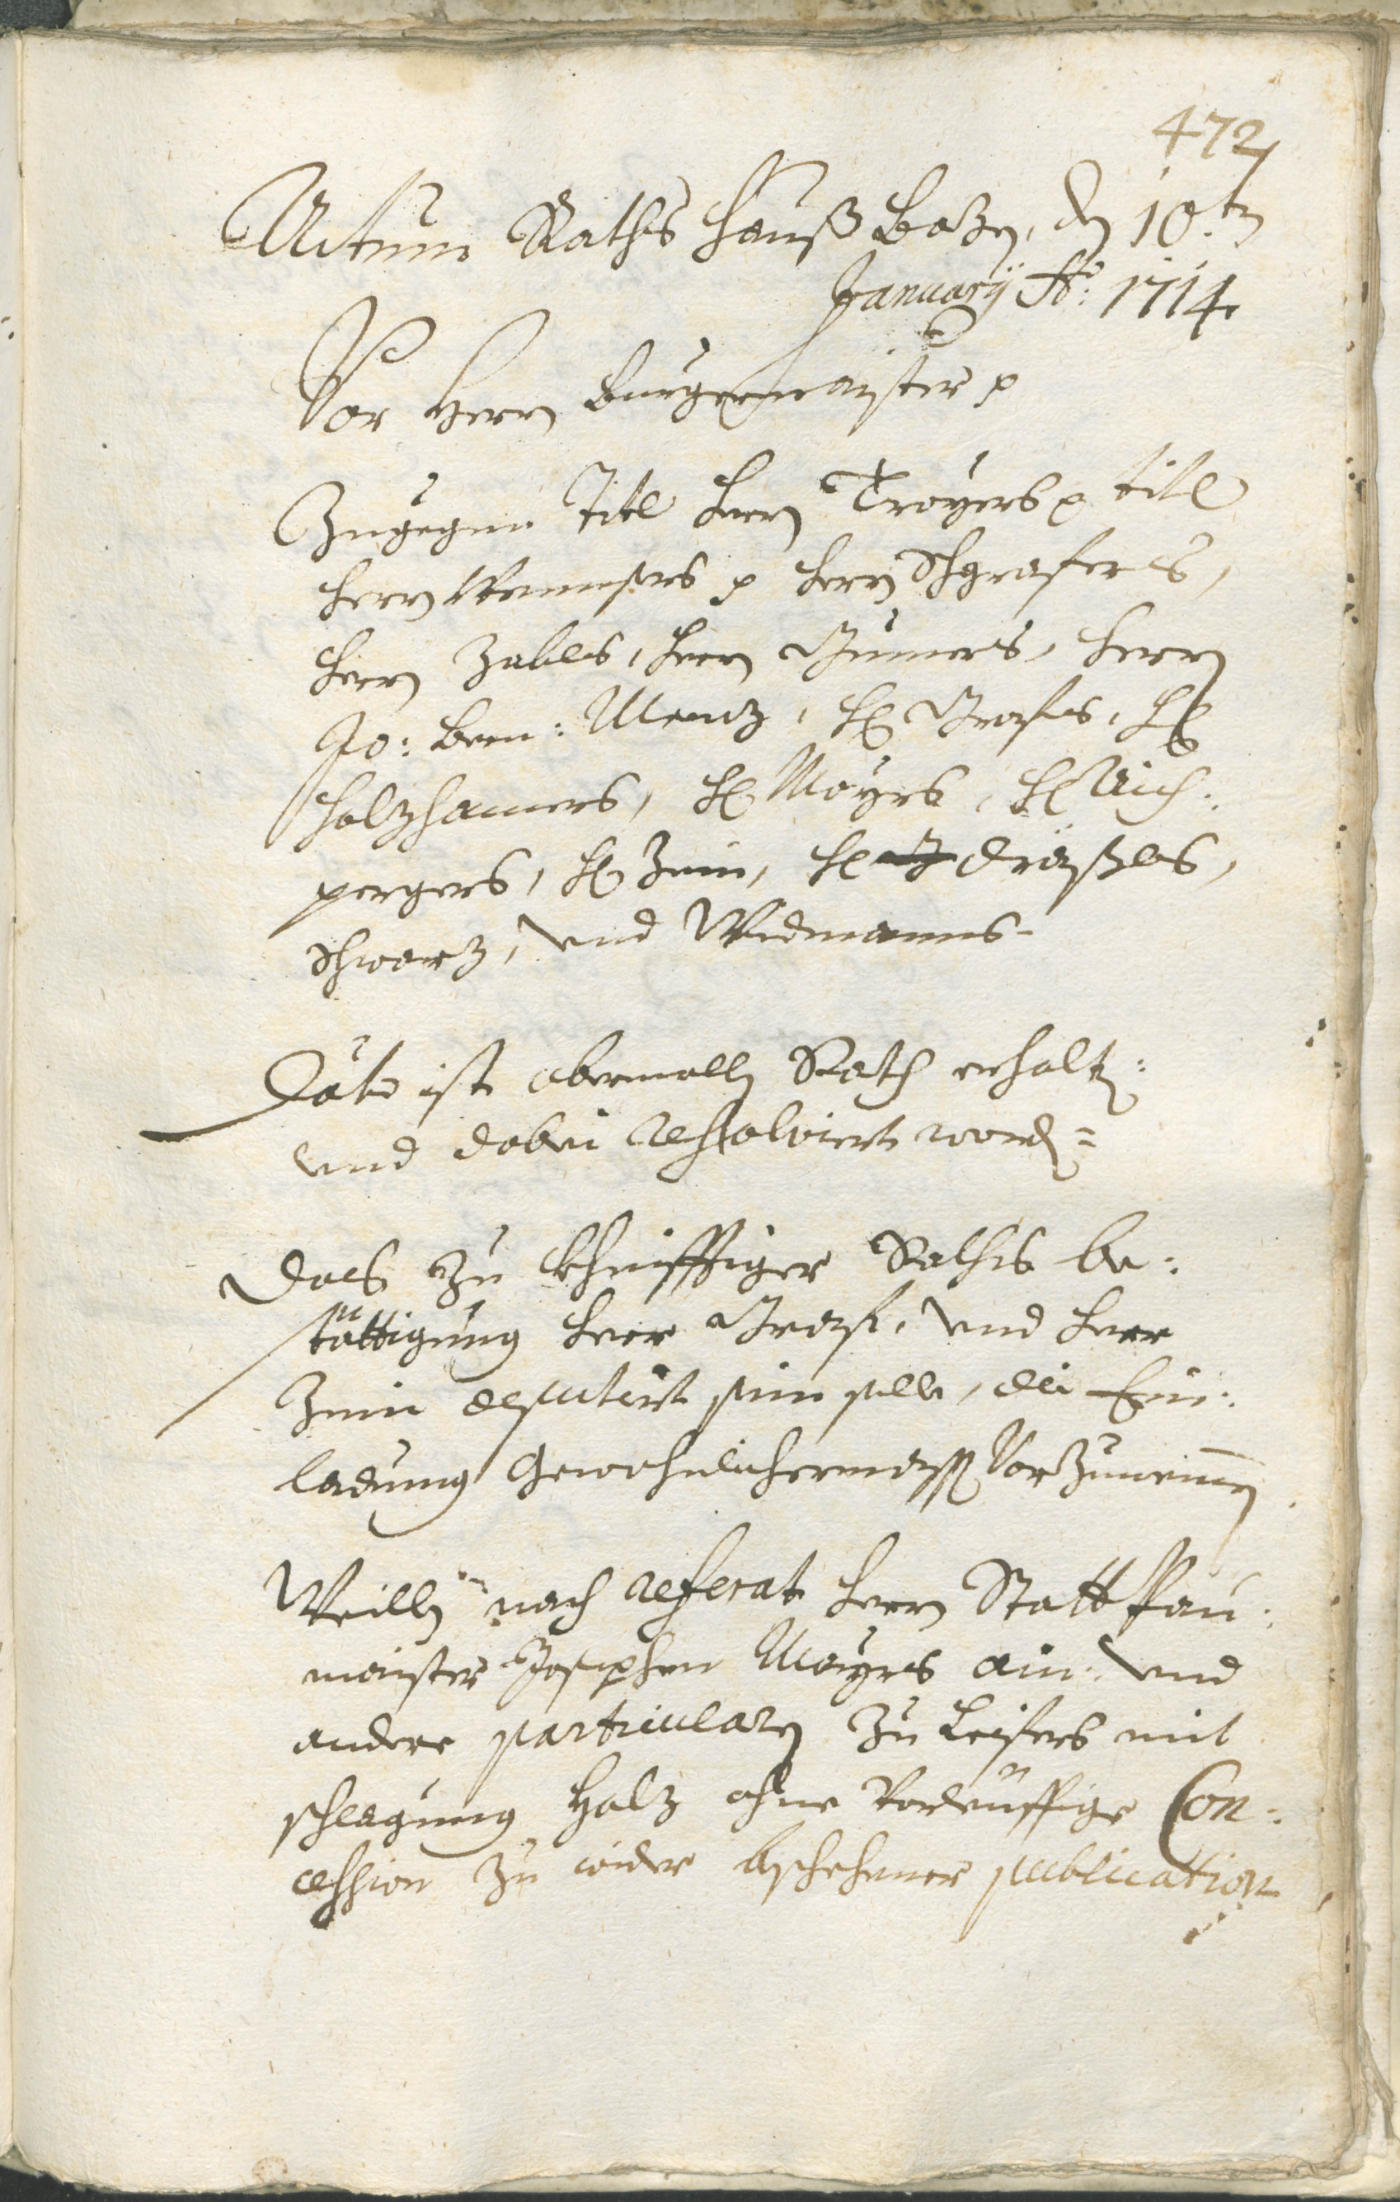 472
Actum Raths Hauß Bozen, den 10.ten
January Ao: 1714
Vor Herrn Burgermaister p
Zugegen Titl Herrn Troyers p titl
Herrn Wenusers p Herrn Schgrafers,
Herrn Zallers, Herrn Gumers, Herrn
Jo: Bem: Menz, H: Grafs, H:
Holzhamers, H: Mayrs, H: Aich:
pergers, H: Zein, H: Dräxls,
Schwarz, und Widmanns
Dato ist abermalln Rath gehalt:
und dabei resolviert word=
Das zu khünfftiger Raths be:
stättigung Herr Graf, und Herr
Zein deputiert sein solle, die Ein:
ladung gewohnlichermassen vorzunemen
Weilln nach referat Herrn Statt Pau:
maister Josephen Mayrs ain: und
andere particularn zu Leifers mit
schlagung Holz ohne vorleuffige Con:
cession zu wider beschehener publication